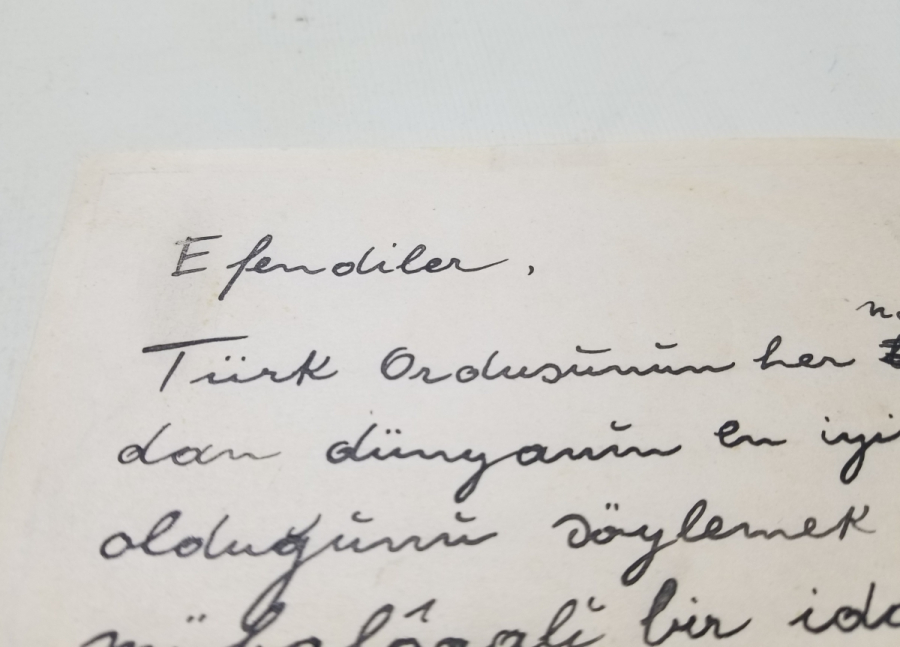 Efendiler,
Türk Ordusunun her
dan dünyanın en iyi
olduğunu söylemek
bir